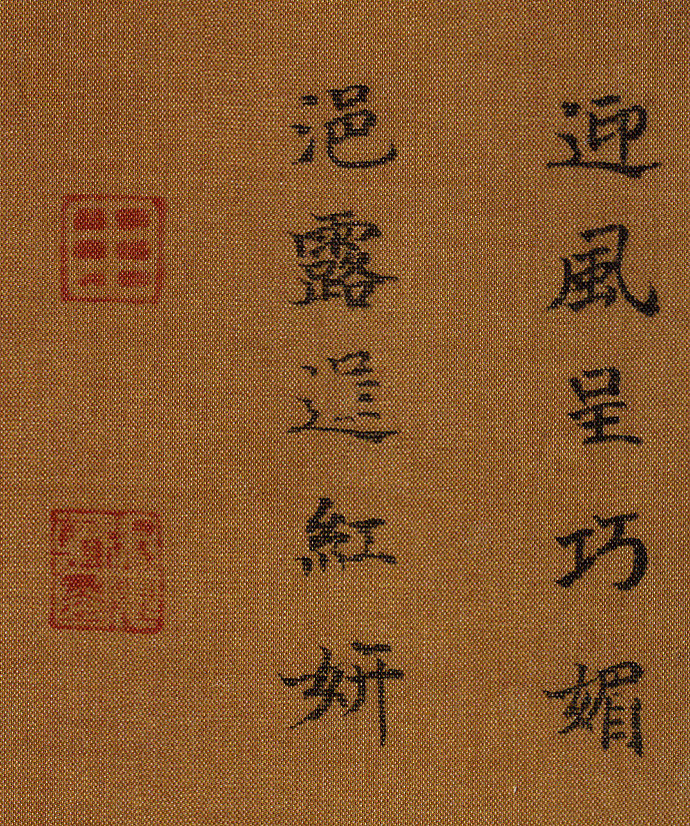 迎風呈巧媚
浥露逞紅妍